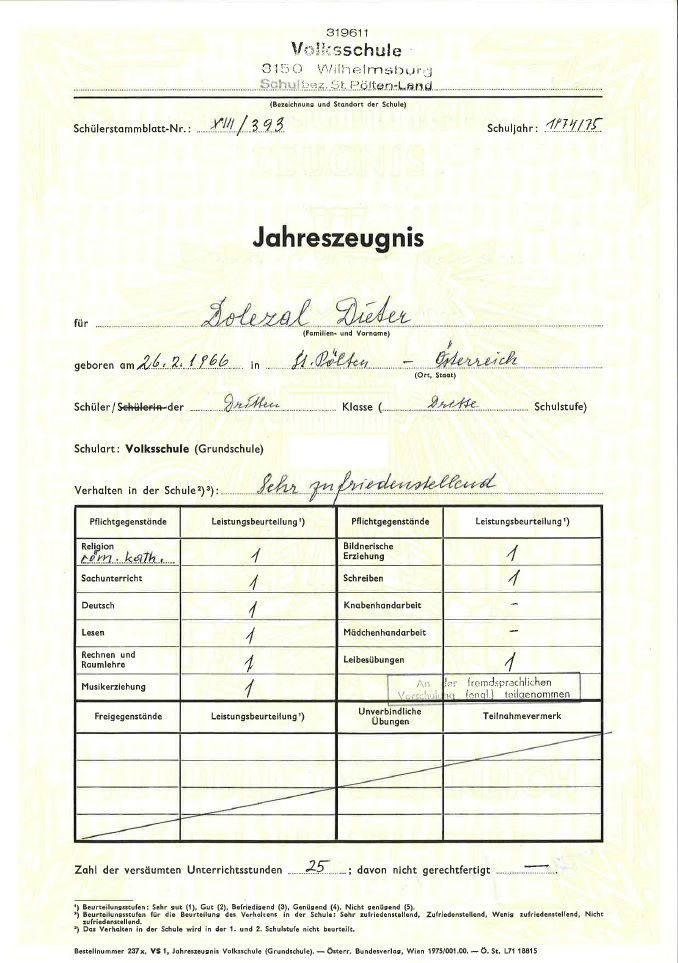 319611
Volksschule
3150 Wilhelmsburg
Schulbez. St. Pölten-Land
(Bezeichnung und Standort der Schule)
Schülerstammblatt-Nr.: XIII/393 Schuljahr: 1974/75
Jahreszeugnis
für Dolezal Dieter
(Familien- und Vorname)
geboren am 26.2.1966 in St. Pölten – Österreich
(Ort, Staat)
Schüler/Schülerin der Dritten Klasse ( Dritte Schulstufe)
Schulart: Volksschule (Grundschule)
Verhalten in der Schule²)³): Sehr zufriedenstellend
Pflichtgegenstände Leistungsbeurteilung¹) Pflichtgegenstände Leistungsbeurteilung¹)
Religion röm. kath. 1 Bildnerische Erziehung 1
Sachunterricht 1 Schreiben 1
Deutsch 1 Knabenhandarbeit –
Lesen 1 Mädchenhandarbeit –
Rechnen und Raumlehre 1 Leibesübungen 1
Musikerziehung 1
An der fremdsprachlichen
Vorschulung (engl.) teilgenommen
Freigegenstände Leistungsbeurteilung¹) Unverbindliche Übungen Teilnahmevermerk
Zahl der versäumten Unterrichtsstunden 25 ; davon nicht gerechtfertigt — .
¹) Beurteilungsstufen: Sehr gut (1), Gut (2), Befriedigend (3), Genügend (4), Nicht genügend (5).
²) Beurteilungsstufen für die Beurteilung des Verhaltens in der Schule: Sehr zufriedenstellend, Zufriedenstellend, Wenig zufriedenstellend, Nicht
zufriedenstellend.
³) Das Verhalten in der Schule wird in der 1. und 2. Schulstufe nicht beurteilt.
Bestellnummer 237x, VS 1, Jahreszeugnis Volksschule (Grundschule). — Österr. Bundesverlag, Wien 1975/001.00. — Ö. St. L71 18815